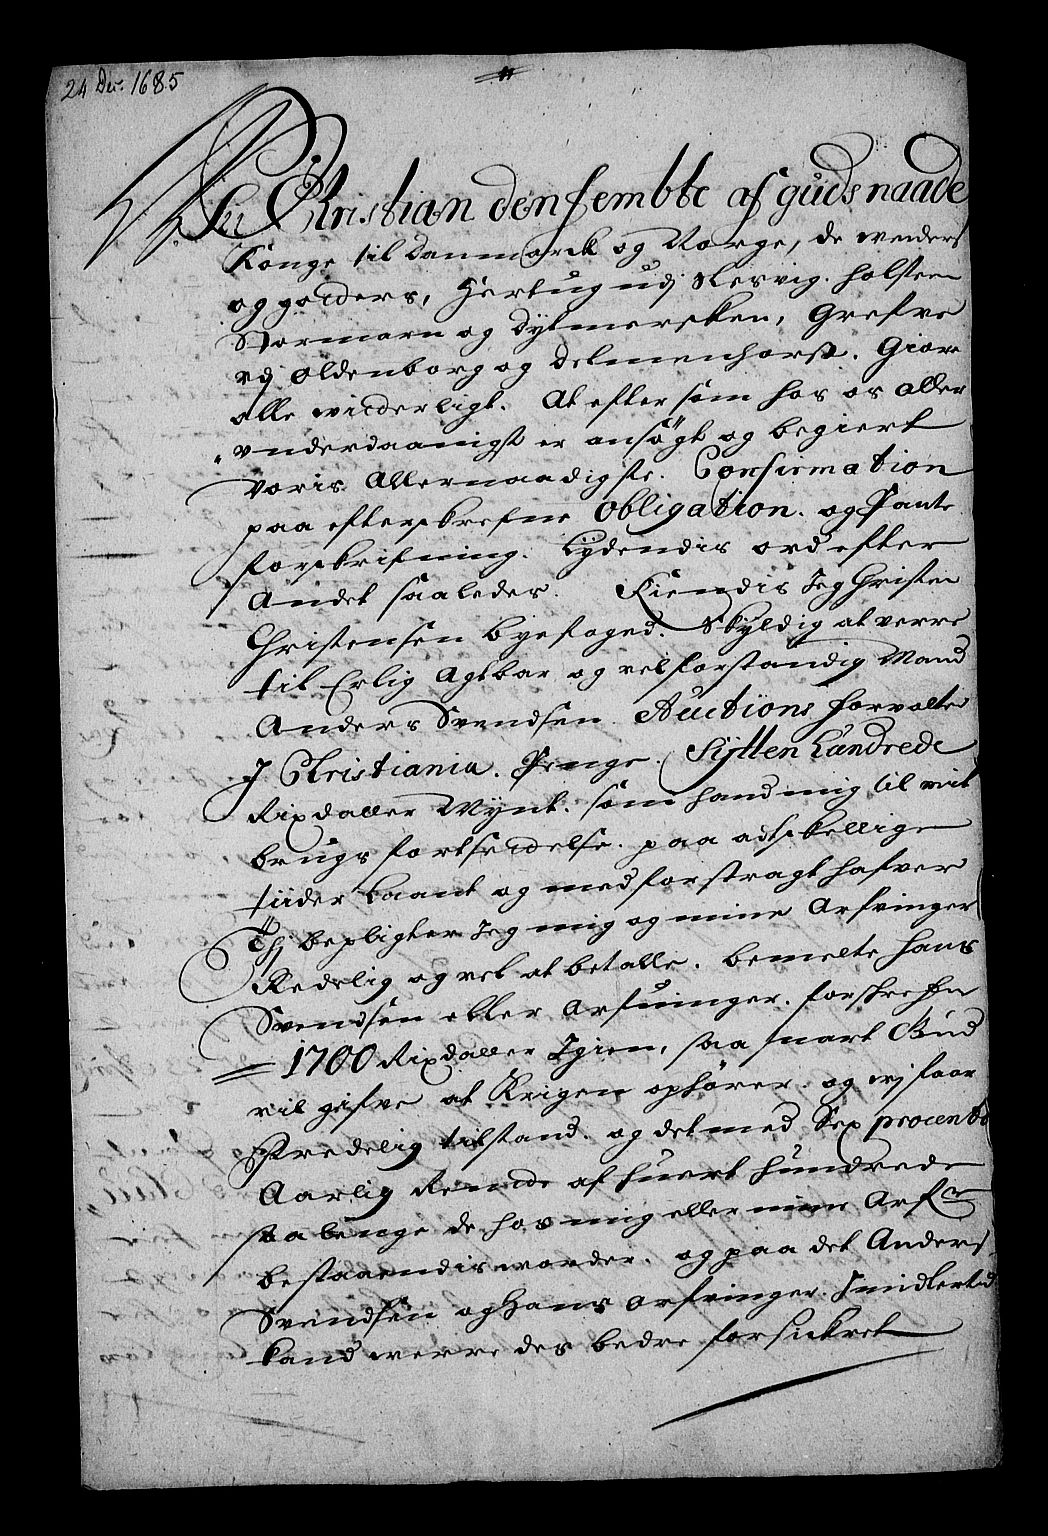 24 Dec. 1685
Vi Christian den fembte af guds naade
Konge til Danmarck og Norge, de wenders
og gotders, Hertug udj Slesvig. Holsteen
Stormarn og Dytmersken, Grefve
udj Oldenborg og Delmenhorst. Giøre
alle witterligt. At eftersom hos os aller
underdaanigst er ansøgt og begiert
voris Allernaadigste. Confirmation
paa efterskrefne Obligation. og Pante
forskrifning. Lydendis ord efter
Andet saaledes. Kiendis Jeg Christen
Christensen Byefoged. Skyldig at verre
til Erlig Agtbar og velforstandig Mand
Anders Svendsen. Auctions forvalter
J Christiania. Penge. Sytten Hundrede
Rixdaller Mynt. som hand mig til mit
brugs fortsettelse. paa adtskellige
tiider Laant og medforstragt hafver
Thj bepligter Jeg mig og mine Arfvinger
Redelig og vel at betalle. bemelte Hans
Svendsen eller Arfuinger. forskrefne
1700 Rixdaller Igien, saa snart Gud
vil gifve at Krigen ophører. og wj faar
Fredelig tilstand. og det med Sex procento
Aarlig Rente af huert hundrede
saa lenge de hos mig eller mine Arf:
bestaaendis worder. og paa det Anders
Svendsen og Hans Arfvinger. Imidlertid
kand werre des bedre forsickret